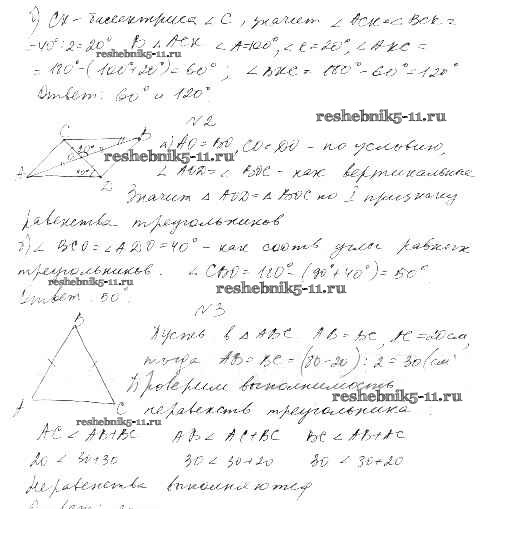 б) CK - биссектриса ∠C, значит ∠ACK = ∠BCK =
= 40° : 2 = 20° В △ACK ∠A = 100°, ∠C = 20°, ∠AKC =
reshebnik5-11.ru
= 180° - (100° + 20°) = 60°; ∠BKC = 180° - 60° = 120°
Ответ: 60° и 120°
N2
reshebnik5-11.ru
C B
а) AO = BO, CO = DO - по условию,
reshebnik5-11.ru
∠AOD = ∠BOC - как вертикальные
A D
Значит △AOD = △BOC по I признаку
равенства треугольников
б) ∠BCO = ∠ADO = 40° - как соотв углы равных
треугольников. ∠CBO = 180° - (90° + 40°) = 50°
reshebnik5-11.ru
reshebnik5-11.ru
Ответ: 50°.
N3
B
Пусть в △ABC AB = BC, AC = 20 см,
тогда AB = BC = (80 - 20) : 2 = 30 (см)
Проверим выполнимость
reshebnik5-11.ru
A C
неравенств треугольника:
reshebnik5-11.ru
AC < AB + BC AB < AC + BC BC < AB + AC
20 < 30 + 30 30 < 30 + 20 30 < 30 + 20
Неравенства выполняются